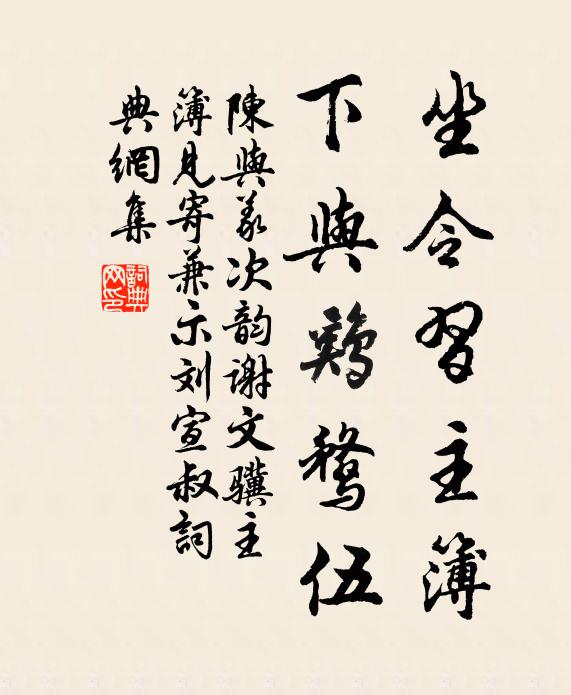 坐令習主簿
下與鷄鶩伍
陳與義次韵谢文骥主
簿見寄兼示刘宣叔詞
典網集
詞典网印